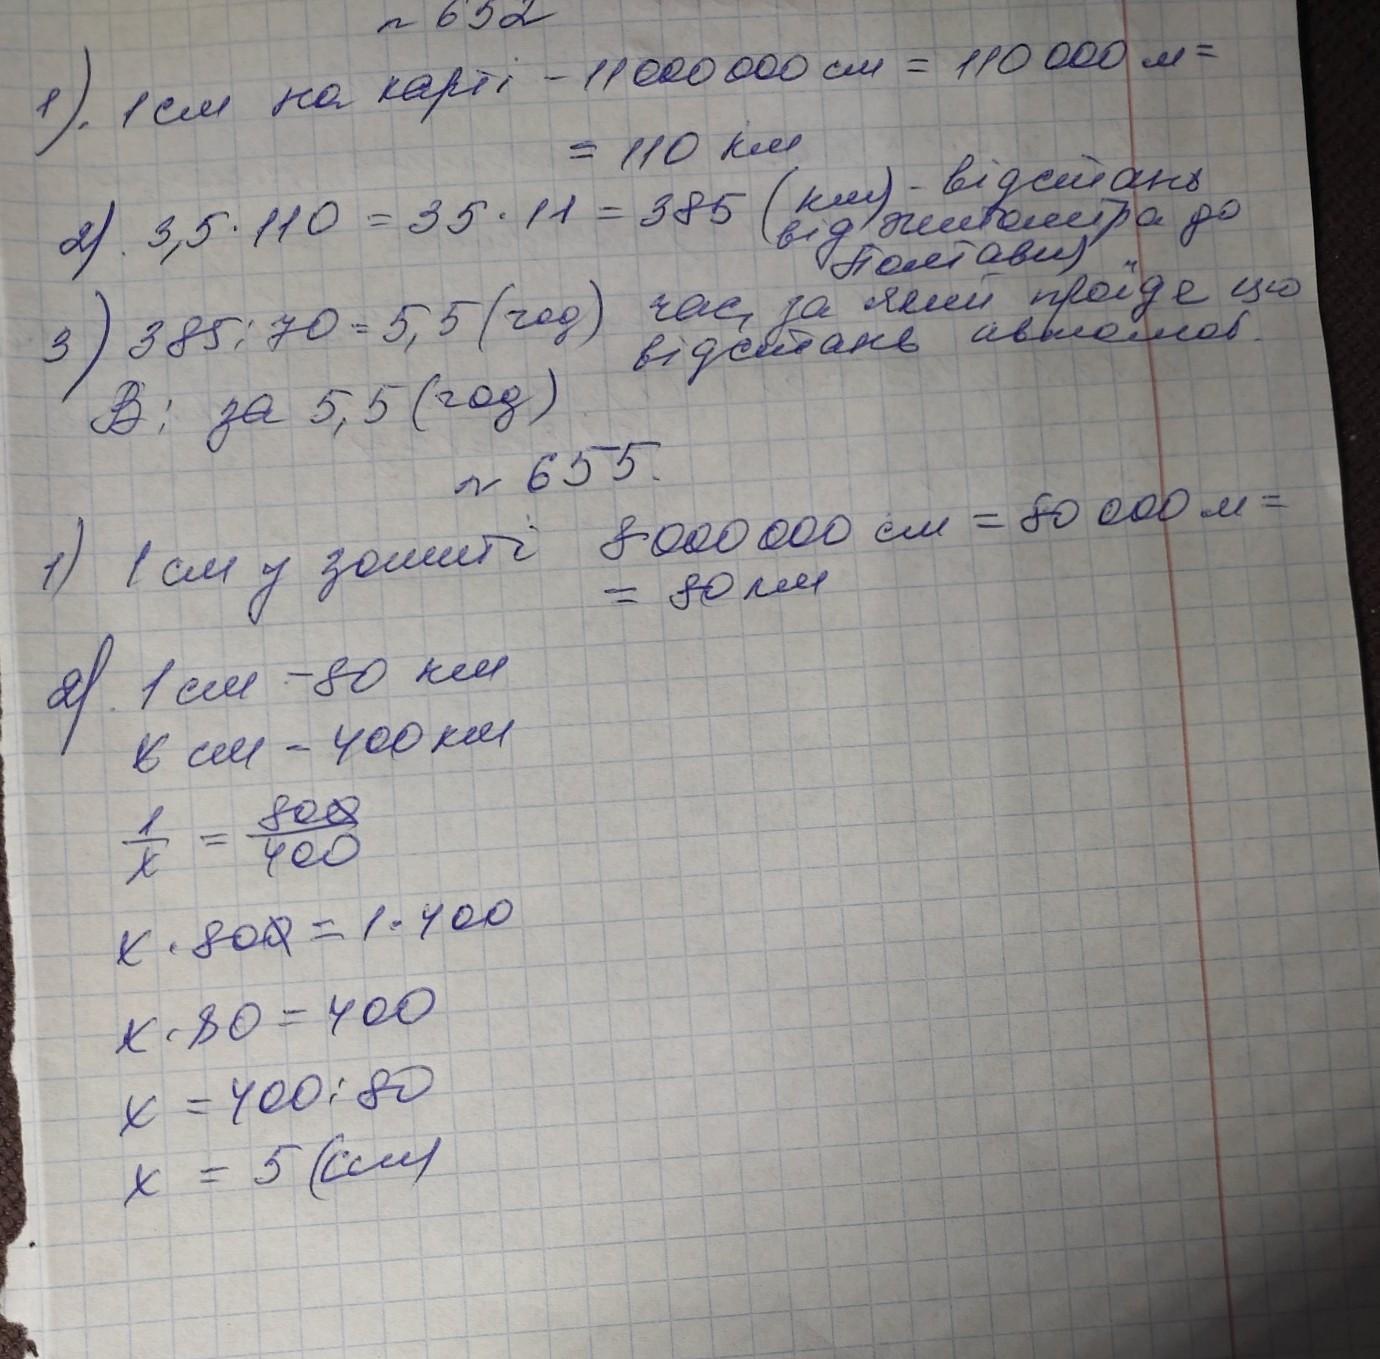 № 652
1). 1 см на карті - 11000 000 см = 110 000 м =
= 110 км
2). 3,5 · 110 = 35 · 11 = 385 (км) - відстань
від Житомира до
Полтави)
3) 385 : 70 = 5,5 (год) час, за який пройде цю
відстань автомоб.
В: за 5,5 (год)
№ 655.
1) 1 см у зошиті 8000 000 см = 80 000 м =
= 80 км
2). 1 см - 80 км
x см - 400 км
1/x = 800/400
x · 800 = 1 · 400
x · 80 = 400
x = 400 : 80
x = 5 (см)